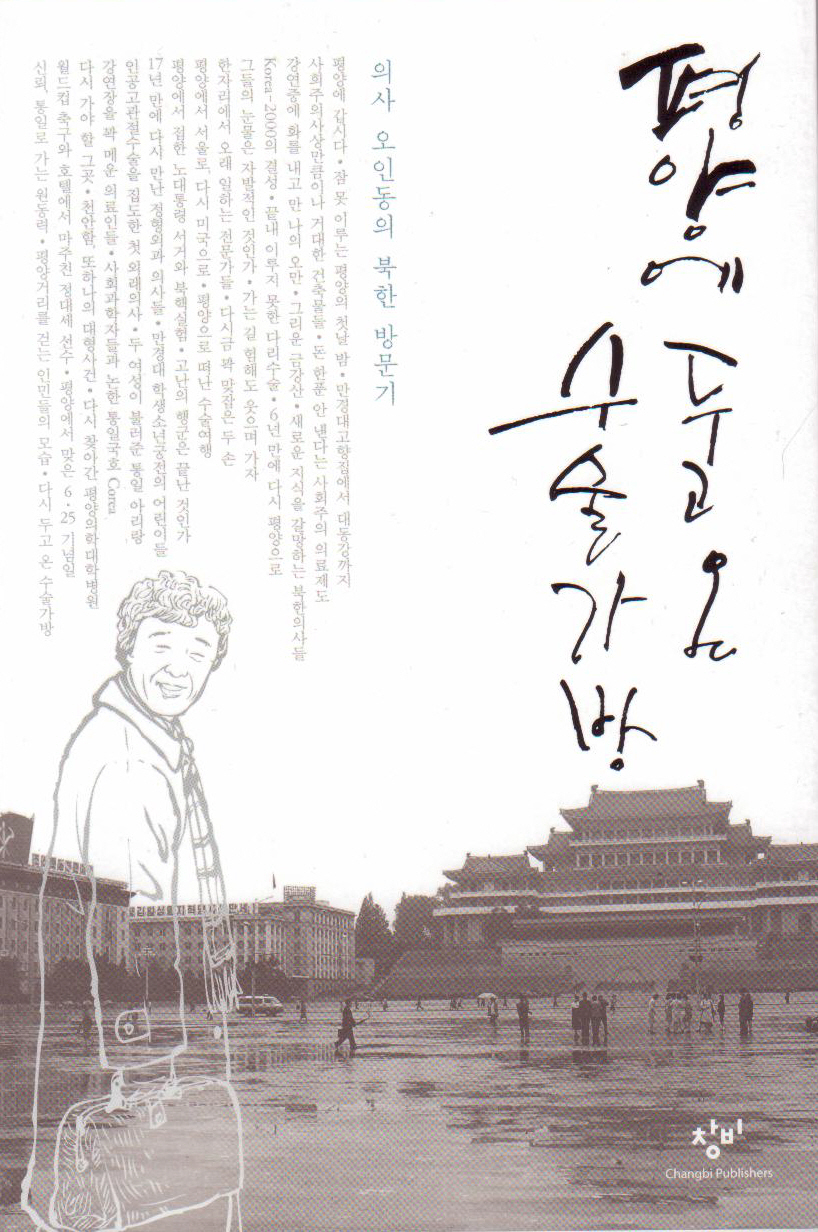 평양에 두고 온
수술가방
의사 오인동의 북한 방문기
평양에 갑시다 • 잠 못 이루는 평양의 첫날 밤 • 만경대고향집에서 대동강까지
사회주의사상만큼이나 거대한 건축물들 • 돈 한푼 안 낸다는 사회주의 의료제도
강연중에 화를 내고 만 나의 오만 • 그리운 금강산 • 새로운 지식을 갈망하는 북한의사들
Korea-2000의 결성 • 끝내 이루지 못한 다리수술 • 6년 만에 다시 평양으로
그들의 눈물은 자발적인 것인가 • 가는 길 험해도 웃으며 가자
한자리에서 오래 일하는 전문가들 • 다시금 꽉 맞잡은 두 손
평양에서 서울로, 다시 미국으로 • 평양으로 떠난 수술여행
평양에서 접한 노대통령 서거와 북핵실험 • 고난의 행군은 끝난 것인가
17년 만에 다시 만난 정형외과 의사들 • 만경대 학생소년궁전의 어린이들
인공고관절수술을 집도한 첫 외래의사 • 두 여성이 불러준 통일 아리랑
강연장을 꽉 메운 의료인들 • 사회과학자들과 논한 통일국호 Corea
다시 가야 할 그곳 • 천안함, 또하나의 대형사건 • 다시 찾아간 평양의학대학병원
월드컵 축구와 호텔에서 마주친 정대세 선수 • 평양에서 맞은 6·25 기념일
신뢰, 통일로 가는 원동력 • 평양거리를 걷는 인민들의 모습 • 다시 두고 온 수술가방
창비
Changbi Publishers